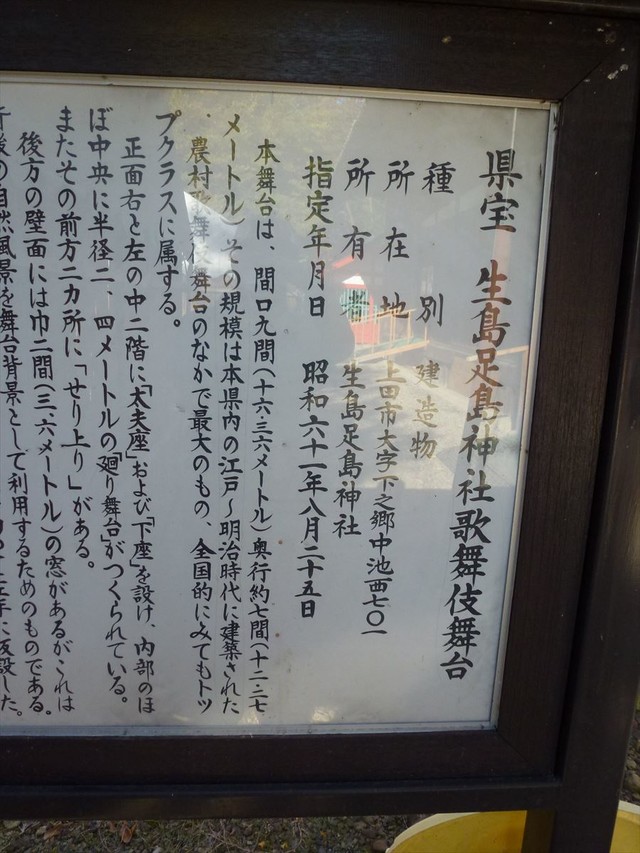 県宝 生島足島神社歌舞伎舞台
種別 建造物
所在地 上田市大字下之郷中池西七〇一
所有者 生島足島神社
指定年月日 昭和六十一年八月二十五日
本舞台は、間口九間(十六・三六メートル)奥行約七間(十二・二七
メートル)その規模は本県内の江戸〜明治時代に建築された
農村歌舞伎舞台のなかで最大のもの、全国的にみてもトッ
プクラスに属する。
正面右と左の中二階に「太夫座」および「下座」を設け、内部のほ
ぼ中央に半径二、四メートルの「廻り舞台」がつくられている。
またその前方二カ所に「せり上り」がある。
後方の壁面には巾二間(三、六メートル)の窓があるがこれは
背後の自然風景を舞台背景として利用するためのものである。